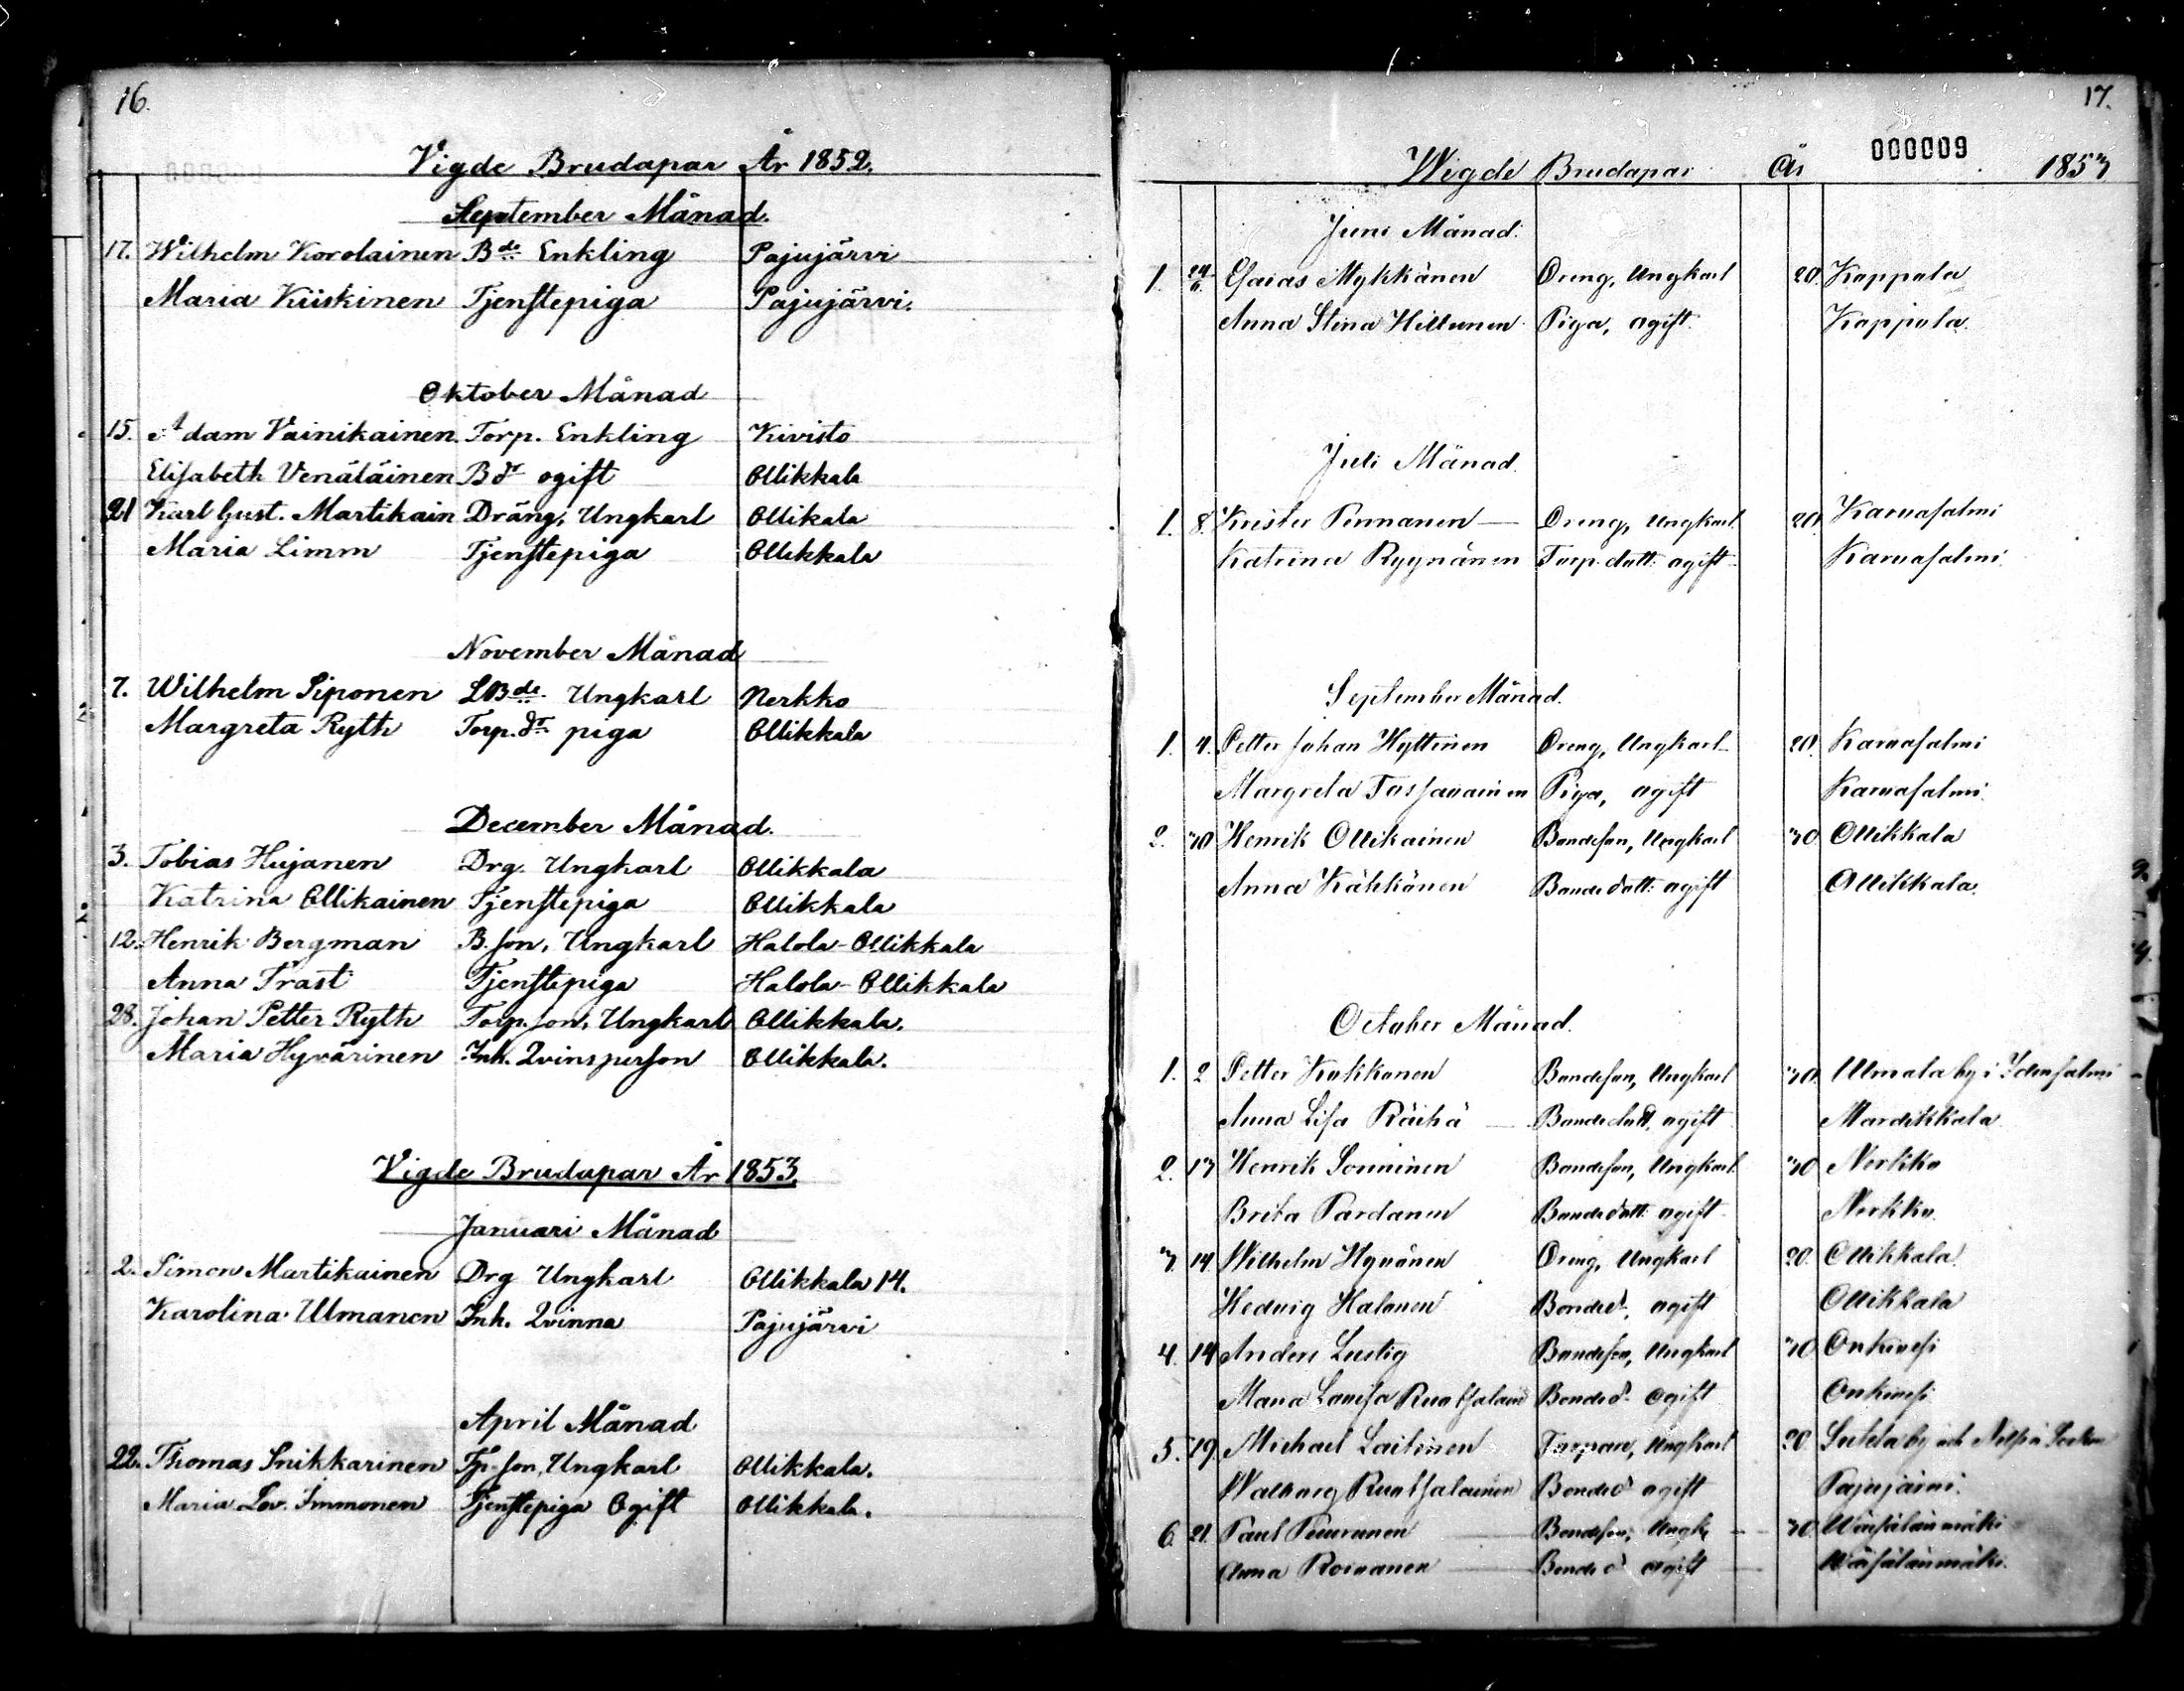 16.
Vigde Brudapar År 1852.
September Månad.
17. Wilhelm Korolainen Bde Enkling Pajujärvi
Maria Kiiskinen Tjenstepiga Pajujärvi.
Oktober Månad
15. Adam Vainikainen. Torp. Enkling Kivisto
Elisabeth Venäläinen B dr ogift Ollikkala
21 Karl Gust. Martikain Dräng, Ungkarl Ollikala
Maria Limm Tjenstepiga Ollikkala
November Månad
7. Wilhelm Siponen LBde. Ungkarl Nerkko
Margreta Ryth Torp. dr piga Ollikkala
December Månad.
3. Tobias Hujanen Drg. Ungkarl Ollikkala
Katrina Ollikainen Tjenstepiga Ollikkala
12. Henrik Bergman B. son, Ungkarl Halola-Ollikkala
Anna Trast Tjenstepiga Halola-Ollikkala
28. Johan Petter Ryth Torp. son, Ungkarl Ollikkala.
Maria Hyvärinen Inh. Qvinsperson Ollikkala.
Vigde Brudapar År 1853.
Januari Månad
2. Simon Martikainen Drg Ungkarl Ollikkala 14.
Karolina Ulmanen Inh. Qvinna Pajujärvi
April Månad
22. Thomas Snikkarinen Tp. son, Ungkarl Ollikkala.
Maria Lov. Immonen Tjenstepiga Ogift Ollikkala.
17.
000009
Wigde Brudapar År 1853
Juni Månad.
1. 24/6 Esaias Mykkänen Dreng, Ungkarl 20. Kappala
Anna Stina Hiltunen Piga, ogift. Kappala
Juli Månad.
1. 8. Krister Pennanen Dreng, Ungkarl 20. Karvasalmi
Katrina Ryynänen Torp. dott. ogift Karvasalmi
September Månad.
1. 4. Petter Johan Hyttinen Dreng, Ungkarl 20. Karvasalmi
Margreta Tossavainen Piga, ogift Karvasalmi.
2. 30 Henrik Ollikainen Bondeson, Ungkarl 30 Ollikkala
Anna Kähkönen Bonde dott. ogift Ollikkala.
October Månad.
1. 2 Petter Kukkonen Bondeson, Ungkarl 30 Ulmala by i Idensalmi
Anna Lisa Räihä Bonde dott, ogift Mardikkala
2. 13 Henrik Sonninen Bondeson, Ungkarl 30 Nerkko
Brita Pardanen Bonde dott. ogift Nerkko
3. 14. Wilhelm Hyvönen Dreng, Ungkarl 20. Ollikkala
Hedvig Halonen Bonded. ogift Ollikkala
4. 14 Anders Lustig Bondeson, Ungkarl 30 Onkivesi
Maria Lovisa Bonded. ogift Onkivesi
5. 19. Michael Laitinen Torpare, Ungkarl 20 by
Walborg Ruotsalainen Bonded ogift Pajujärvi.
6. 21. Paul Bondeson, Ungk. 30 Wäisälänmäki
Anna Roivanen Bonde d ogift Wäisälänmäki.